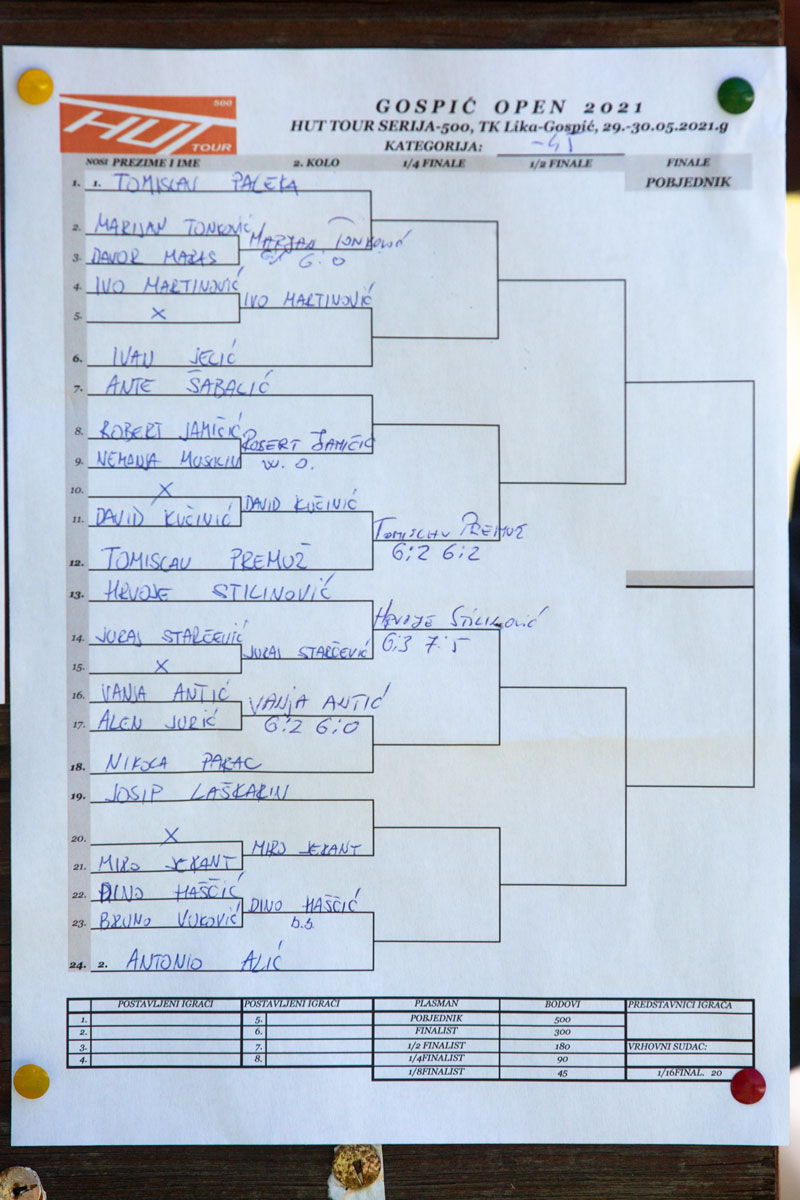 500
HUT
TOUR
GOSPIĆ OPEN 2021
HUT TOUR SERIJA-500, TK Lika-Gospić, 29.-30.05.2021.g
KATEGORIJA: -45
NOSI PREZIME I IME 2. KOLO 1/4 FINALE 1/2 FINALE FINALE
POBJEDNIK
1. 1. TOMISLAV PALEKA
2. MARIJAN TONKOVIĆ
MARIJAN TONKOVIĆ
3. DAVOR MARAS
6:1 6:0
4. IVO MARTINOVIĆ
IVO MARTINOVIĆ
5. X
6. IVAN JELIĆ
7. ANTE ŠABALIĆ
8. ROBERT JAMIČIĆ
ROBERT JAMIČIĆ
9. NEMANJA
W. O.
10. X
DAVID KUČINIĆ
11. DAVID KUČINIĆ
TOMISLAV PREMUŽ
6:2 6:2
12. TOMISLAV PREMUŽ
13. HRVOJE STILINOVIĆ
HRVOJE STILINOVIĆ
6:3 7:5
14. JURAJ STARČEVIĆ
JURAJ STARČEVIĆ
15. X
16. VANJA ANTIĆ
VANJA ANTIĆ
17. ALEN JURIĆ
6:2 6:0
18. NIKOLA PARAC
19. JOSIP LAŠKARIN
20. X
MIRO JERANT
21. MIRO JERANT
22. DINO HAŠČIĆ
DINO HAŠČIĆ
23. BRUNO VUKOVIĆ
b.b.
24. 2. ANTONIO ALIĆ
POSTAVLJENI IGRAČI POSTAVLJENI IGRAČI PLASMAN BODOVI PREDSTAVNICI IGRAČA
1. 5. POBJEDNIK 500
2. 6. FINALIST 300
3. 7. 1/2 FINALIST 180 VRHOVNI SUDAC:
4. 8. 1/4FINALIST 90
1/8FINALIST 45 1/16FINAL. 20